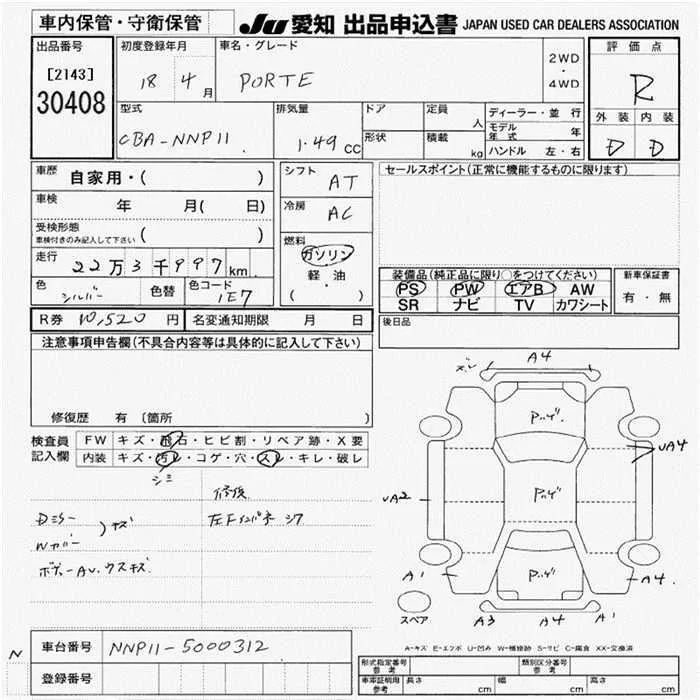 車内保管・守衛保管
JU 愛知 出品申込書 JAPAN USED CAR DEALERS ASSOCIATION
出品番号
[2143]
30408
初度登録年月
18 4 月
車名・グレード
PORTE
2WD
・
4WD
評価点
R
外装 内装
D D
型式
CBA-NNP11
排気量
1.49 CC
ドア
形状
定員
人
積載
kg
ディーラー・並行
モデル年式 年
ハンドル 左・右
車歴
自家用・( )
車検
年 月( 日)
受検形態
車検付きのみ記入して下さい ( )
走行
22万3千997km
色
シルバー
色替
色コード
1E7
シフト
AT
冷房
AC
燃料
ガソリン
軽油
( ・ )
セールスポイント(正常に機能するものに限ります)
装備品(純正品に限り○をつけてください)
PS PW エアB AW
SR ナビ TV カワシート
新車保証書
有・無
R券 10,520 円 名変通知期限 月 日
後日品
注意事項申告欄(不具合内容等は具体的に記入して下さい)
修復歴 有 〔箇所 〕
検査員
記入欄
FW キズ・飛石・ヒビ割・リペア跡・X要
内装 キズ・汚レ・コゲ・穴・スレ・キレ・破レ
シミ
修復
Dミラー
Wカバー
)キズ
左Fインパネ シワ
ボデーAU.ウスキズ.
ズレ
A4
Pハゲ.
UA4
UA2
Pハゲ
Pハゲ
A1
A4.
A3
A4
A1
スペア
A-キズ E-エクボ U-凹み W-補修跡 S-サビ C-腐食 XX-交換済
N
車台番号 NNP11-5000312
登録番号
形式指定番号
参考
類別区分番号
参考
車庫証明用
参考
長さ cm 幅 cm 高さ cm